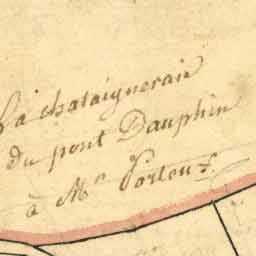 La chataigneraie
du pont Dauphin
à Mr. Porteu